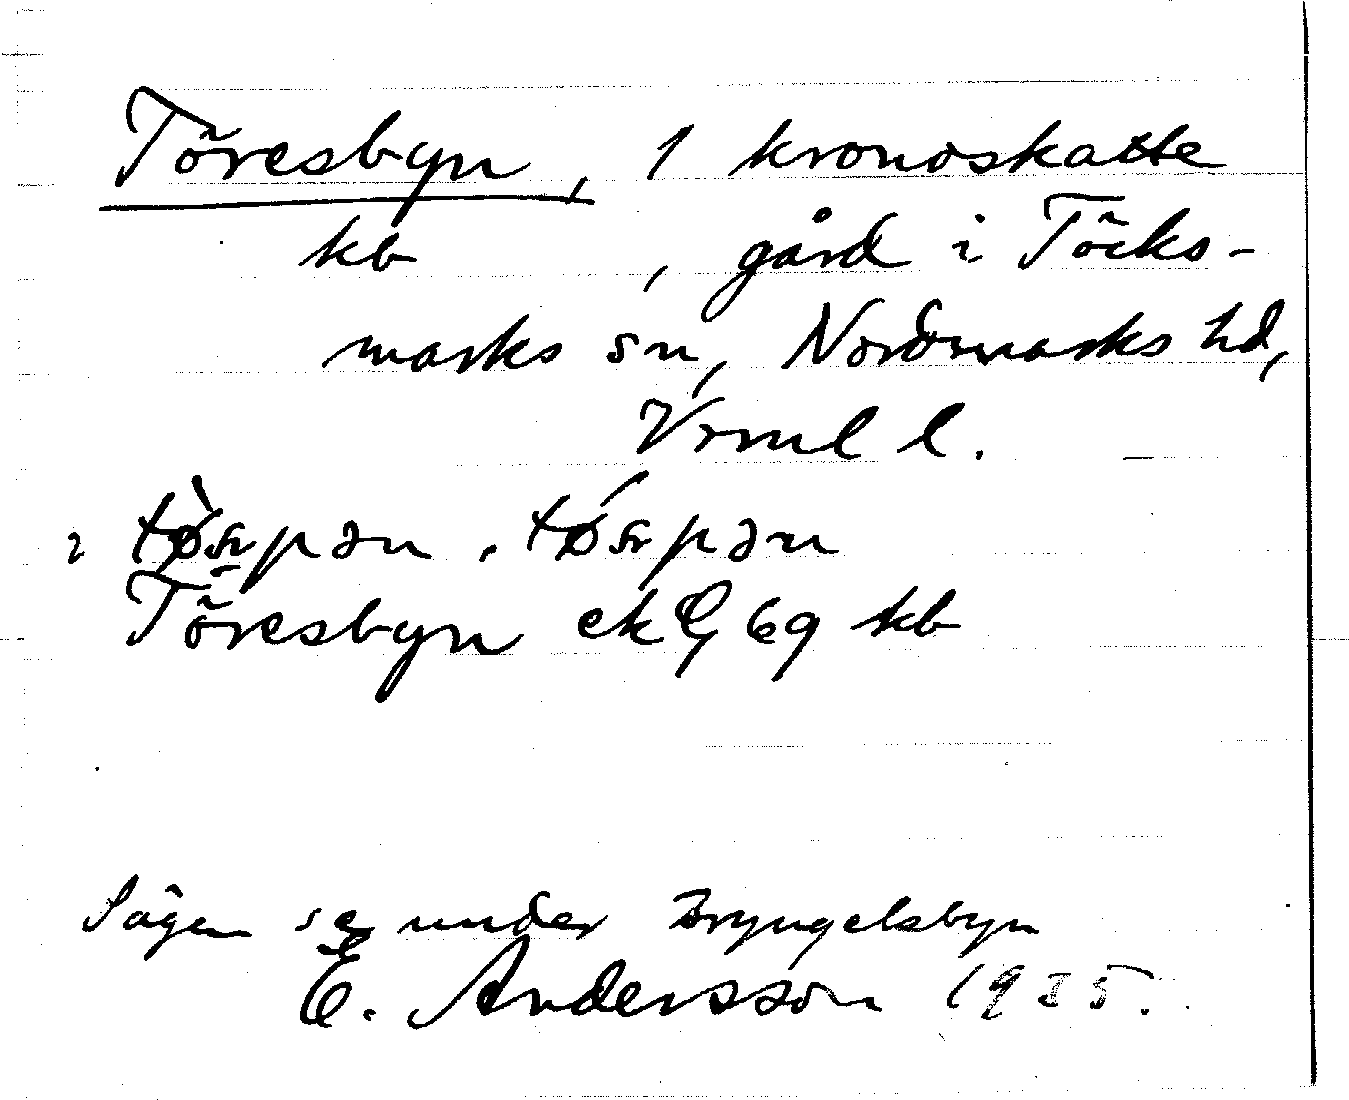 Töresbyn, 1 kronoskatte
kb , gård i Töcks-
marks sn, Nordmarks hd,
Vrml l.
Töresbyn ek 69 kb
Sägen se under Bryngelsbyn
E. Andersson 1935.